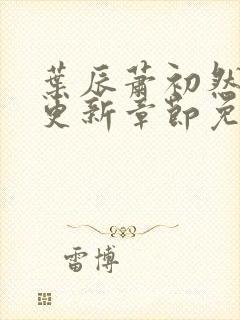 葉辰蕭初然
更新章節免
雷博